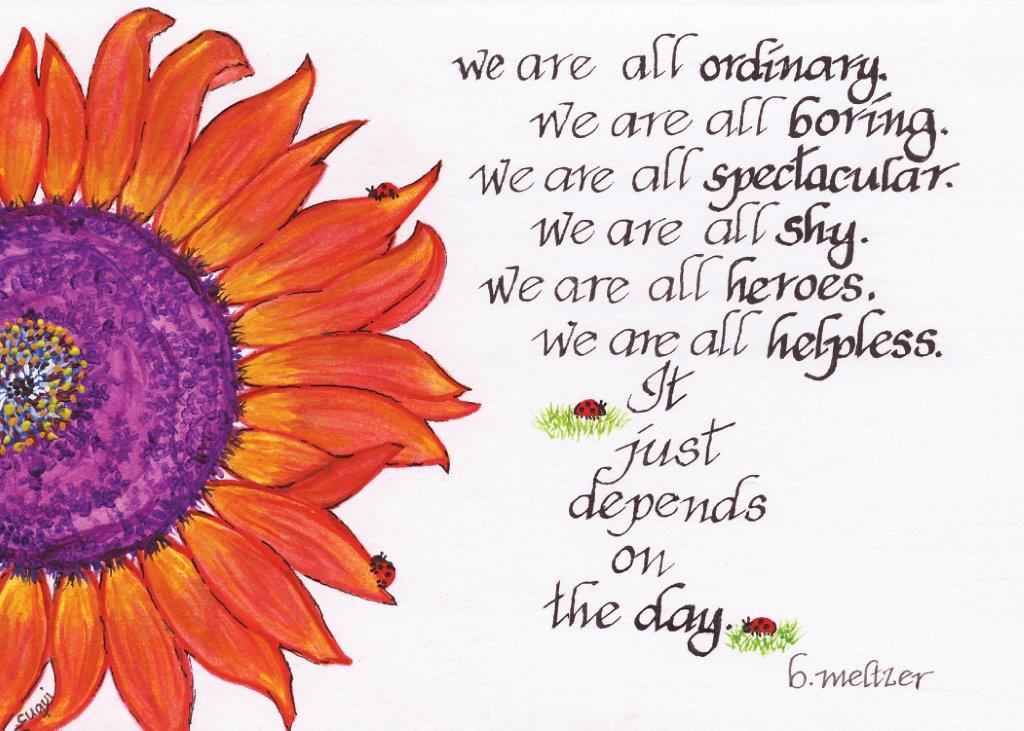 we are all ordinary.
we are all boring.
we are all spectacular.
we are all shy.
we are all heroes.
we are all helpless.
It
just
depends
on
the day.
b. meltzer